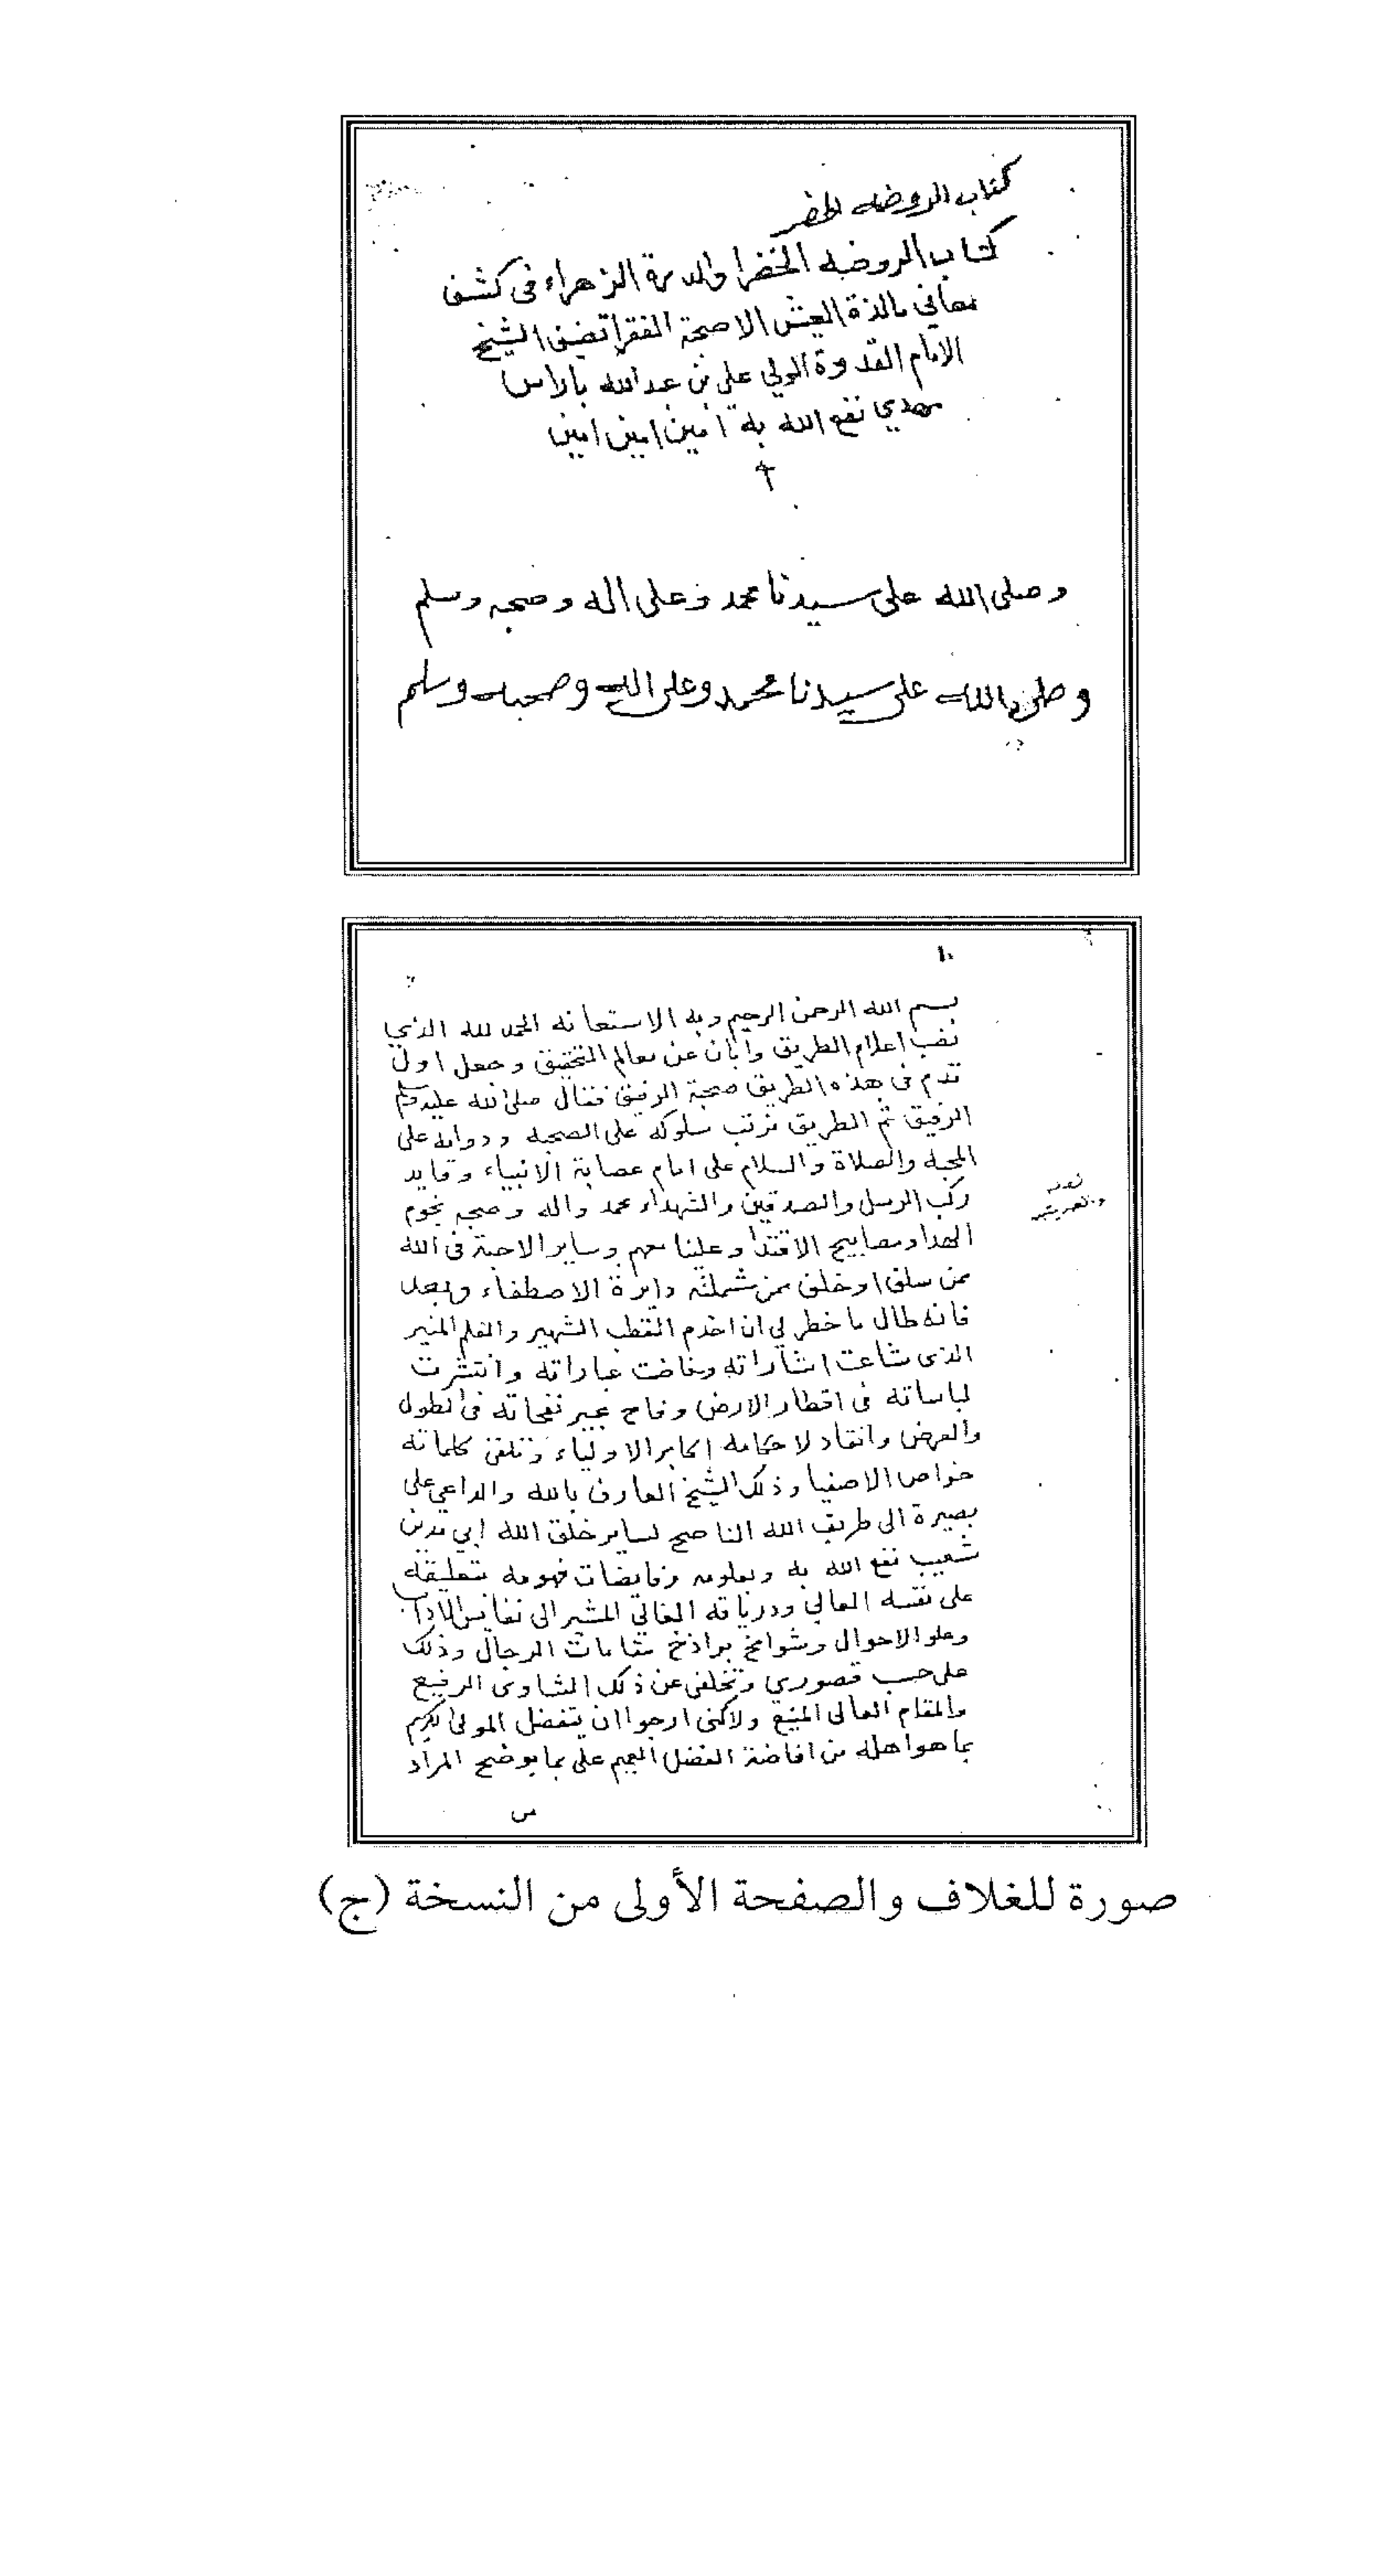 كتاب الروضه الخضر
كتاب الروضه الخضرا والدرة الزهراء في كشف
معاني مالذة العيش الا صحبة الفقرا تصنيف الشيخ
الامام القدوة الولي علي بن عبدالله باراس
نفع الله به امين امين امين
وصلى الله على سيدنا محمد وعلى اله وصحبه وسلم
وصلى الله على سيدنا محمد وعلى اله وصحبه وسلم
بسم الله الرحمن الرحيم وبه الاستعانه الحمد لله الذي
نصب اعلام الطريق وابان عن معالم التحقيق وجعل اول
قدم في هذه الطريق صحبة الرفيق فقال صلى الله عليه وسلم
الرفيق ثم الطريق فرتب سلوكه على الصحبه ودوامه على
المحبه والصلاة والسلام على امام عصابة الانبياء وقايد
ركب الرسل والصديقين والشهداء محمد واله وصحبه نجوم
الهدا ومصابيح الاقتدا وعلينا معهم وساير الاحبة في الله
ممن سلف او خلف ممن شملته دايرة الاصطفاء وبعد
فانه طال ما خطر لي ان اخدم القطب الشهير والعلم المنير
الذي شاعت اشاراته وفاضت عباراته وانتشرت
لباساته في اقطار الارض وفاح عبير نفحاته في الطول
والعرض وانقاد لاحكامه اكابر الاولياء وتلقى كلماته
خواص الاصفيا وذلك الشيخ العارف بالله والداعي على
بصيرة الى طريق الله الناصح لساير خلق الله ابي مدين
شعيب نفع الله به وبعلومه وفايضات فهومه بتعليقه
على نفسه العالي ودرياقه الغالي المشير الى نفايس الاداب
وعلو الاحوال وشوامخ براذخ مقامات الرجال وذلك
على حسب قصوري وتخلفي عن ذلك الشاوى الرفيع
والمقام العالى المنيع ولاكنى ارجوا ان يتفضل المولى الكريم
بما هو اهله من افاضة الفضل العميم على بما يوضح المراد
صورة للغلاف والصفحة الأولى من النسخة (ج)